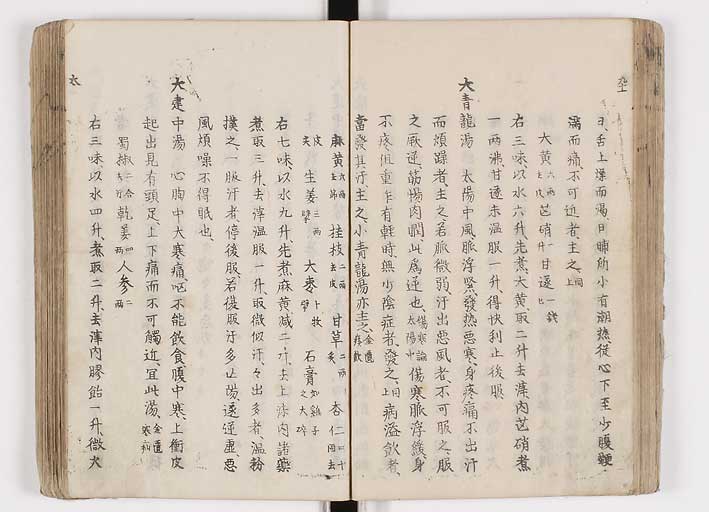 日、舌上燥而渴、日晡所小有潮熱、從心下至少腹鞕
滿而痛不可近者主之、同上
大黄六兩去皮芒硝一升甘遂一錢匕
右三味、以水六升先煮大黄、取二升去滓、内芒硝煮
一兩沸、甘遂末温服一升、得快利止後服、
大青龍湯 太陽中風脈浮緊、發熱悪寒、身疼痛、不出汗
而煩躁者、主之、若脈微弱、汗出悪風者、不可服之、服
之厥逆、筋惕肉瞤、此爲逆也、傷寒論太陽中 傷寒脈浮緩、身
不疼、但重、乍有軽時、無少陰症者、發之、同上 病溢飲者、
當發其汗主之、小青龍湯亦主之、金匱痰飲
麻黄六兩去節 桂枝二兩去皮 甘草二兩炙 杏仁四十箇去
皮 生姜三兩 大棗十枚擘 石膏如雞子之大碎
右七味以水九升先煮麻黄、減二升、去上沫内諸薬
煮取三升、去滓温服一升、取微似汗、汗出多者、温粉
撲之、一服汗者、停後服、若復服、汗多亡陽、遂逆虚、悪
風煩躁不得眠也、
大建中湯 心胸中大寒痛、嘔不能飲食、腹中寒、上衝皮
起出見有頭足、上下痛而不可觸近、宜此湯、金匱寒疝
蜀椒二合去汗 乾姜四兩 人参二兩
右三味以水四升、煮取二升、去滓内膠飴一升、微火